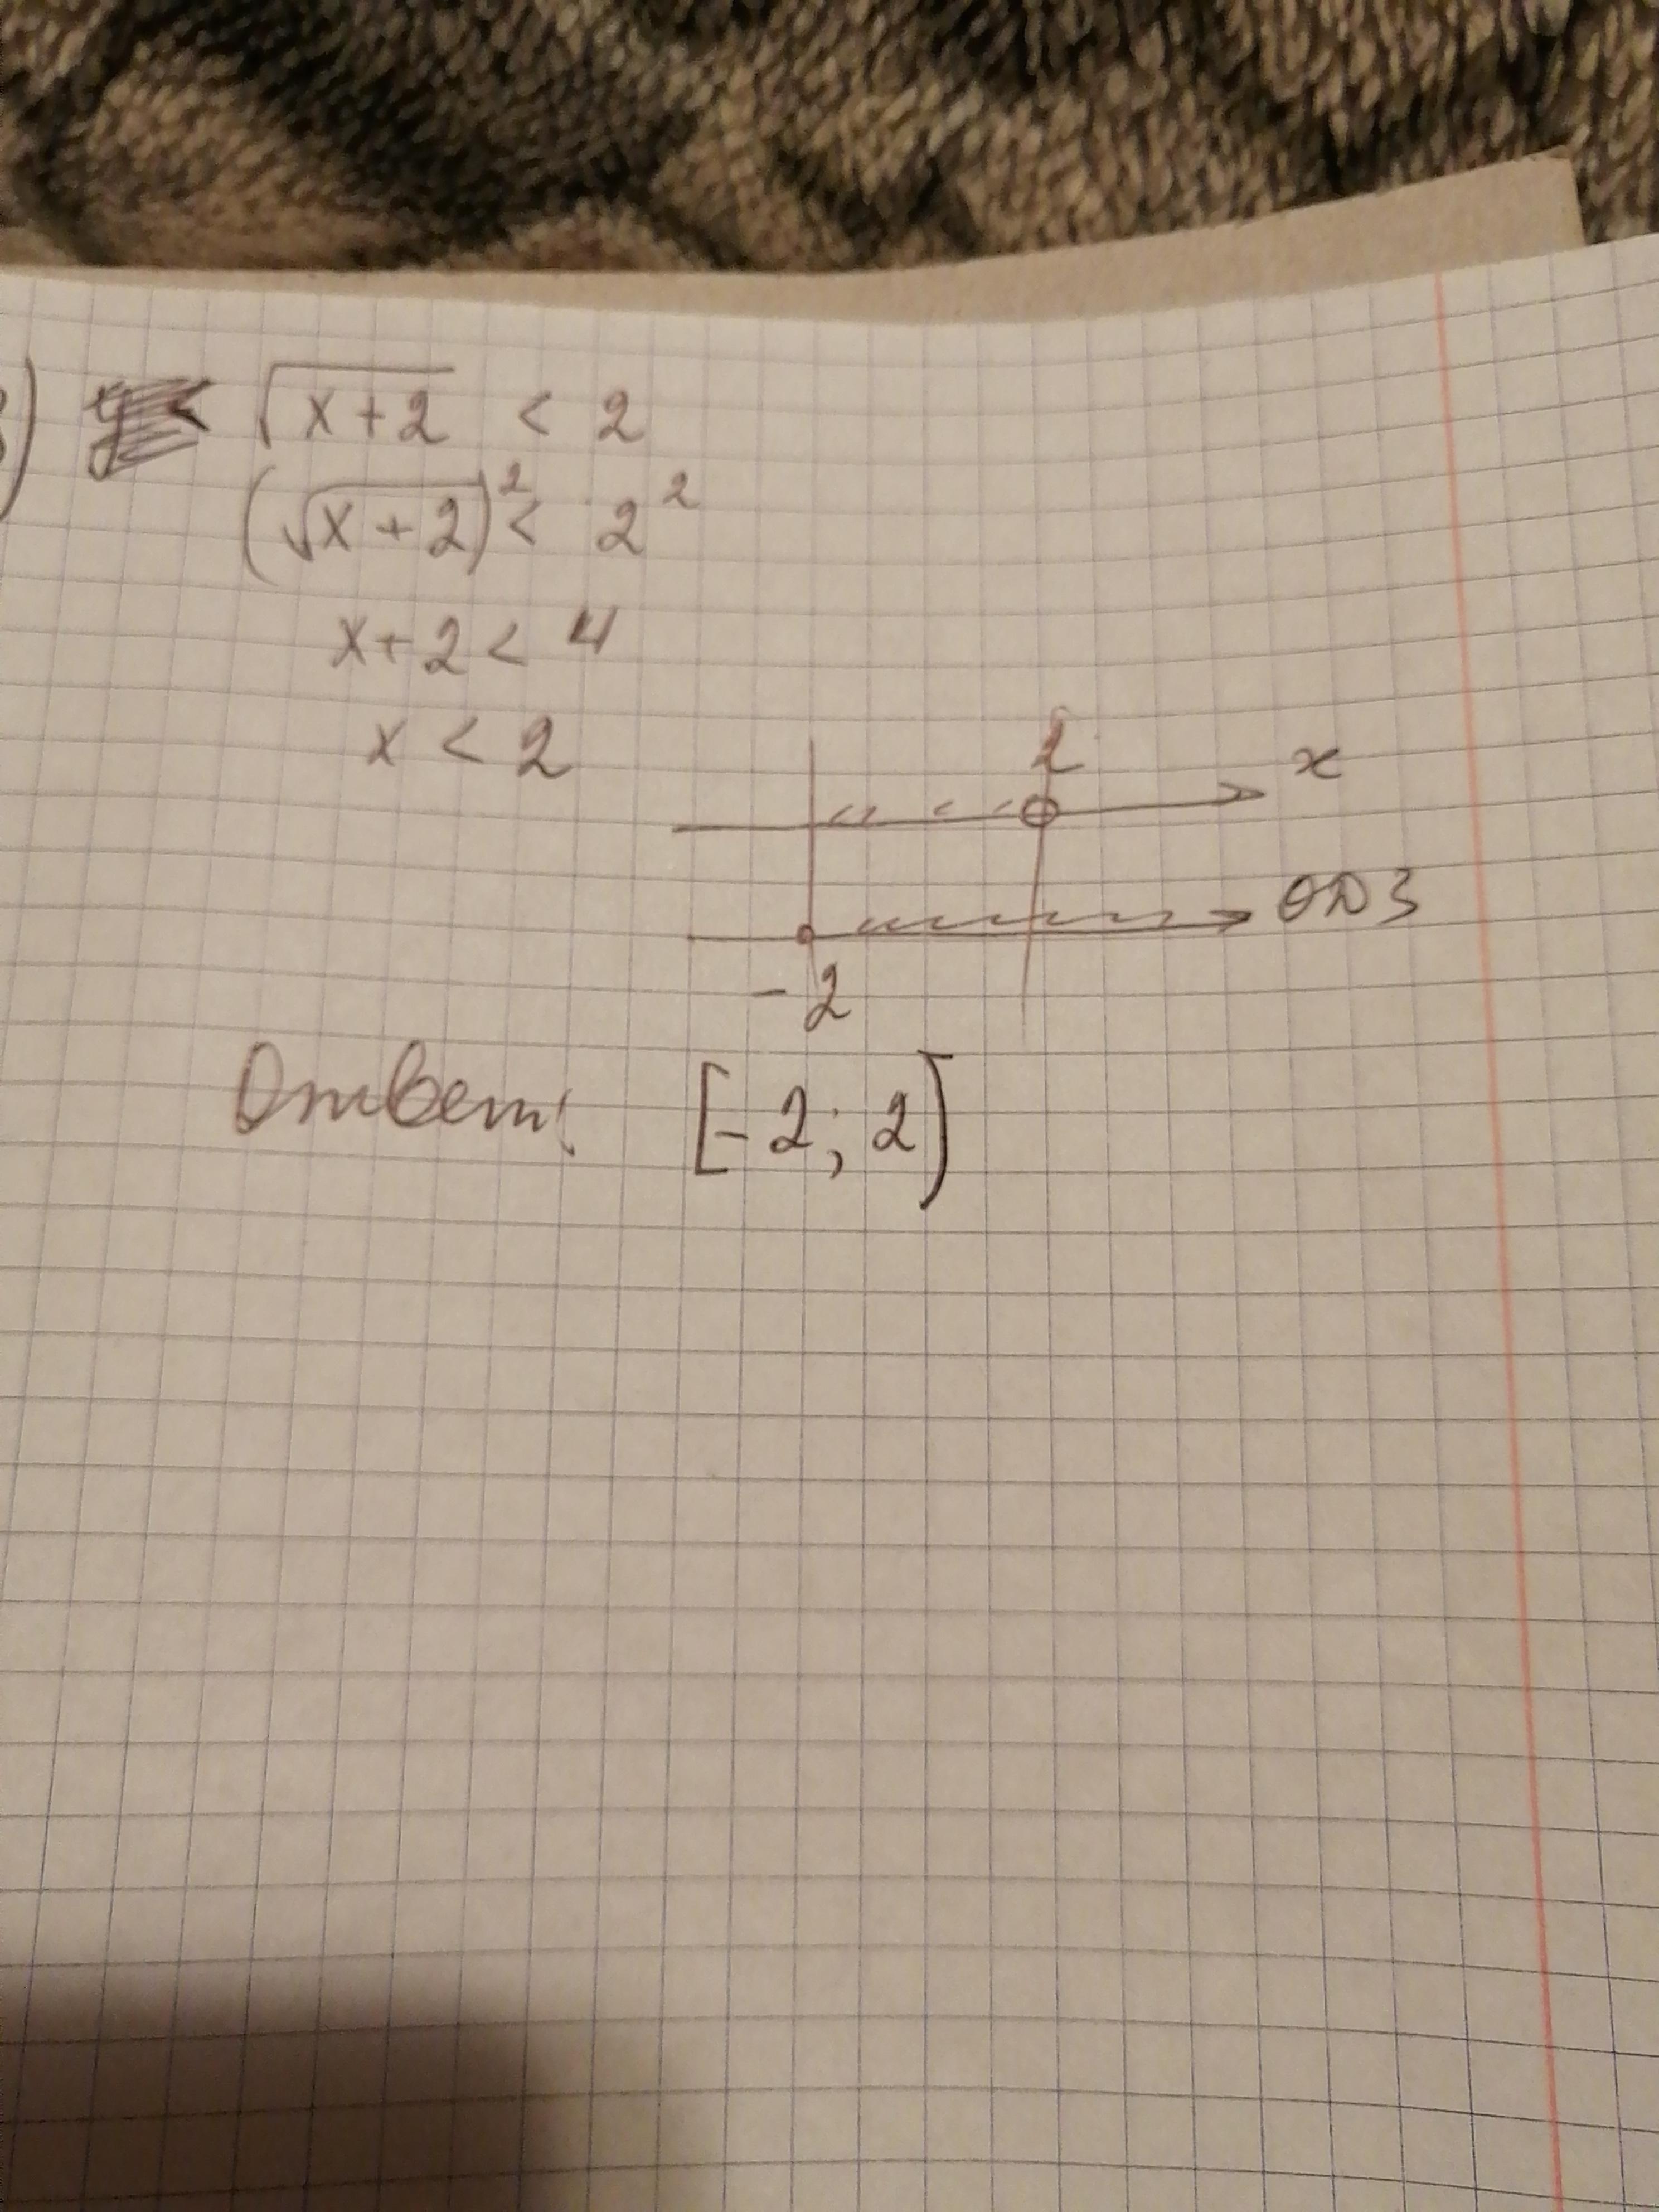 ) √x+2 < 2
(√x+2)² < 2²
x+2 < 4
x < 2
2 x
ОДЗ
-2
Ответ: [-2; 2)